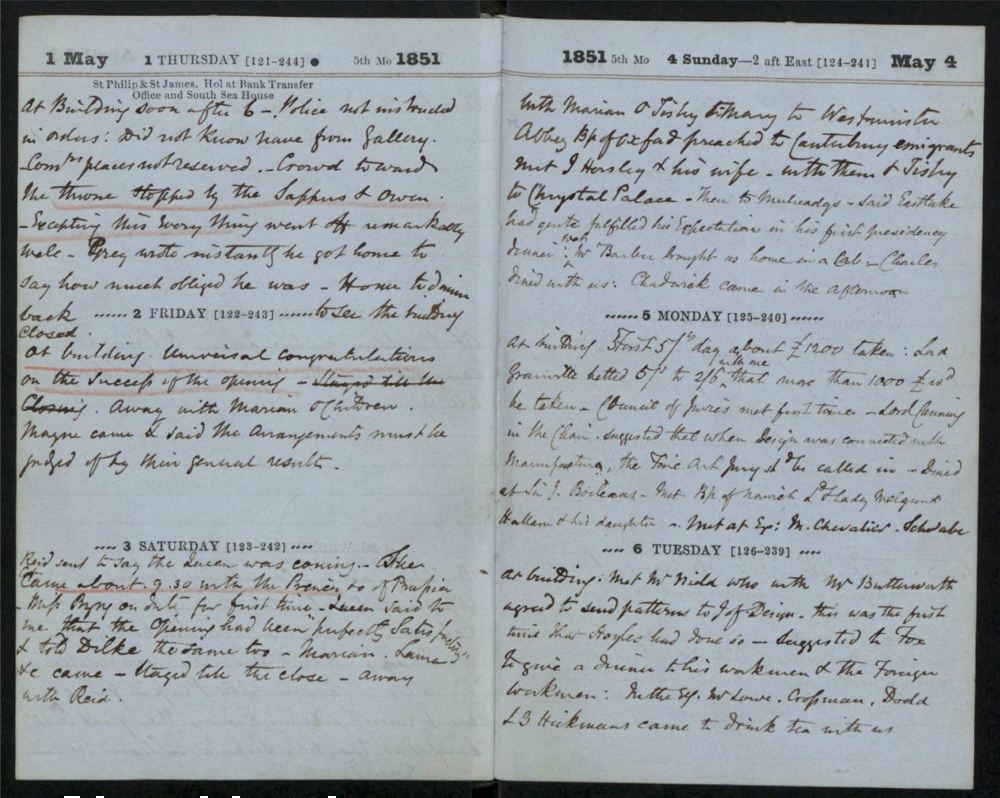 1 May 1 THURSDAY [121-244] ● 5th Mo 1851
St Philip & St James. Hol at Bank Transfer
Office and South Sea House
At Building soon after 6 - Police not instructed
in orders: Did not know leave from Gallery.
- Comrs places not reserved. - Crowd toward
the throne stopped by the Sappers & Owen.
- Excepting this Every thing went off remarkably
well - Grey wrote instantly he got home to
say how much obliged he was - Home to dinner
back to see the building
2 FRIDAY [122-243]
closed.
At building. Universal congratulations
on the Success of the opening - Stayed till the
Closing. Away with Marian & Children.
Mayne came & said the arrangements must be
judged of by their general results.
3 SATURDAY [123-242]
Reid sent to say the Queen was coming. - She
Came about 9.30 with the Princess of Prussia
- Miss Byng on duty for first time - Queen said to
me that the Opening had been "perfectly Satisfactory"
& told Dilke the same too - Marian. Laura
&c came - Stayed till the close - away
with Reid.
1851 5th Mo 4 Sunday—2 aft East [124-241] May 4
With Marian & Tishy & Mary to Westminster
Abbey Bp of Oxford preached to Canterbury emigrants
met J Horsley & his wife - with them & Tishy
to Chrystal Palace - Then to Mulreadys - said Eastlake
had quite fulfilled his Expectation in his first presidency
dinner: wet Mr Barber brought us home in a Cab - Charles
dined with us: Chadwick came in the afternoon
5 MONDAY [125-240]
At building First 5/s day about £1200 taken: Lord
Granville betted 5/s to 2/6 with me that more than 1000 £ wd
be taken - Council of Juries met first time - Lord Canning
in the Chair. suggested that when Design was connected with
Manufacturing, the Fine Art Jury shd be called in - Dined
at Sir J. Boileaus - Met Bp of Norwich Ld & Lady Melgund
Hallam & his daughter - Met at Ex: M. Chevalier. Schwabe
6 TUESDAY [126-239]
At building: Met Mr Nield who with Mr Butterworth
agreed to send patterns to J of Design - this was the first
time that Hoyles had done so - Suggested to Fox
to give a dinner to his workmen & the Foreign
workmen: In the Eg. Mr Lowe. Crossman, Dodd
& 3 Hickmans came to drink tea with us